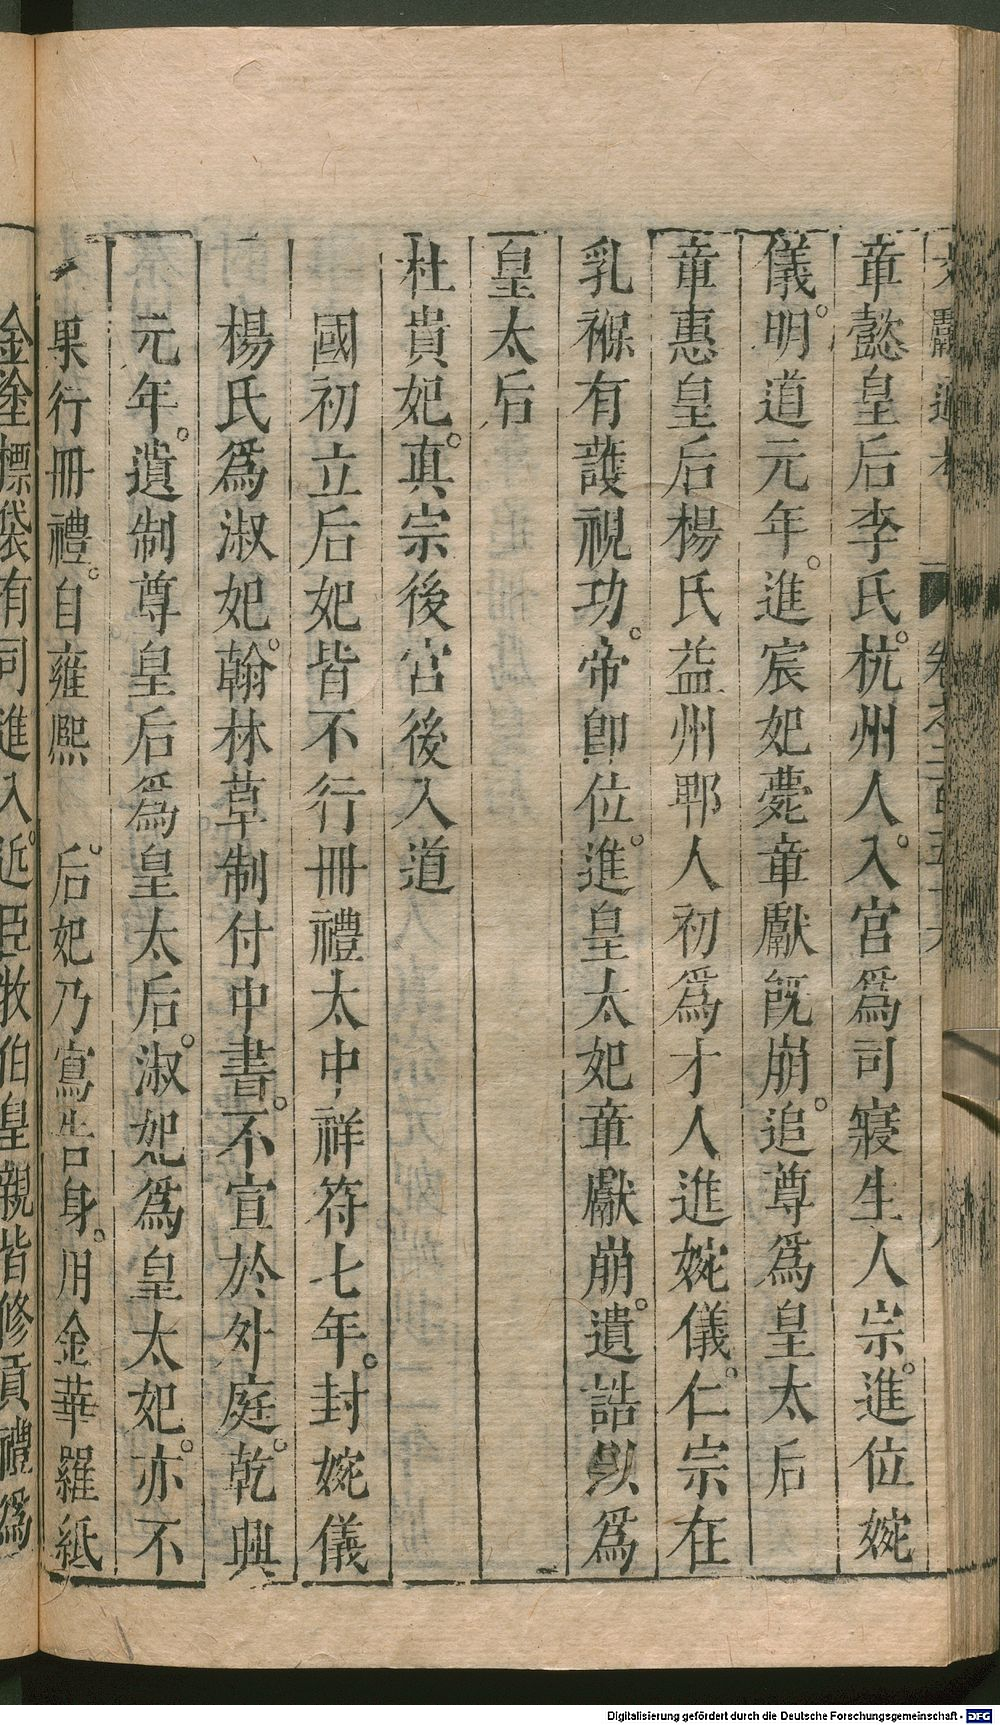 文獻通考 卷之二百五十六
章懿皇后李氏。杭州人。入宮為司寢生人宗。進位婉
儀。明道元年。進宸妃薨章獻既崩。追尊為皇太后
章惠皇后楊氏益州郫人初為才人進婉儀。仁宗在
乳褓有護視功。帝即位。進皇太妃章獻崩。遺誥以為
皇太后
杜貴妃。真宗後宮後入道
國初立后妃皆不行冊禮太中祥符七年。封婉儀
楊氏為淑妃。翰林草制付中書。不宣於外庭。乾興
元年。遺制尊皇后為皇太后。淑妃為皇太妃。亦不
果行冊禮。自雍熙 后。妃乃寫告身。用金華羅紙
金塗標袋有司進入。近臣牧伯皇親皆修貢禮為
Digitalisierung gefördert durch die Deutsche Forschungsgemeinschaft - DFG